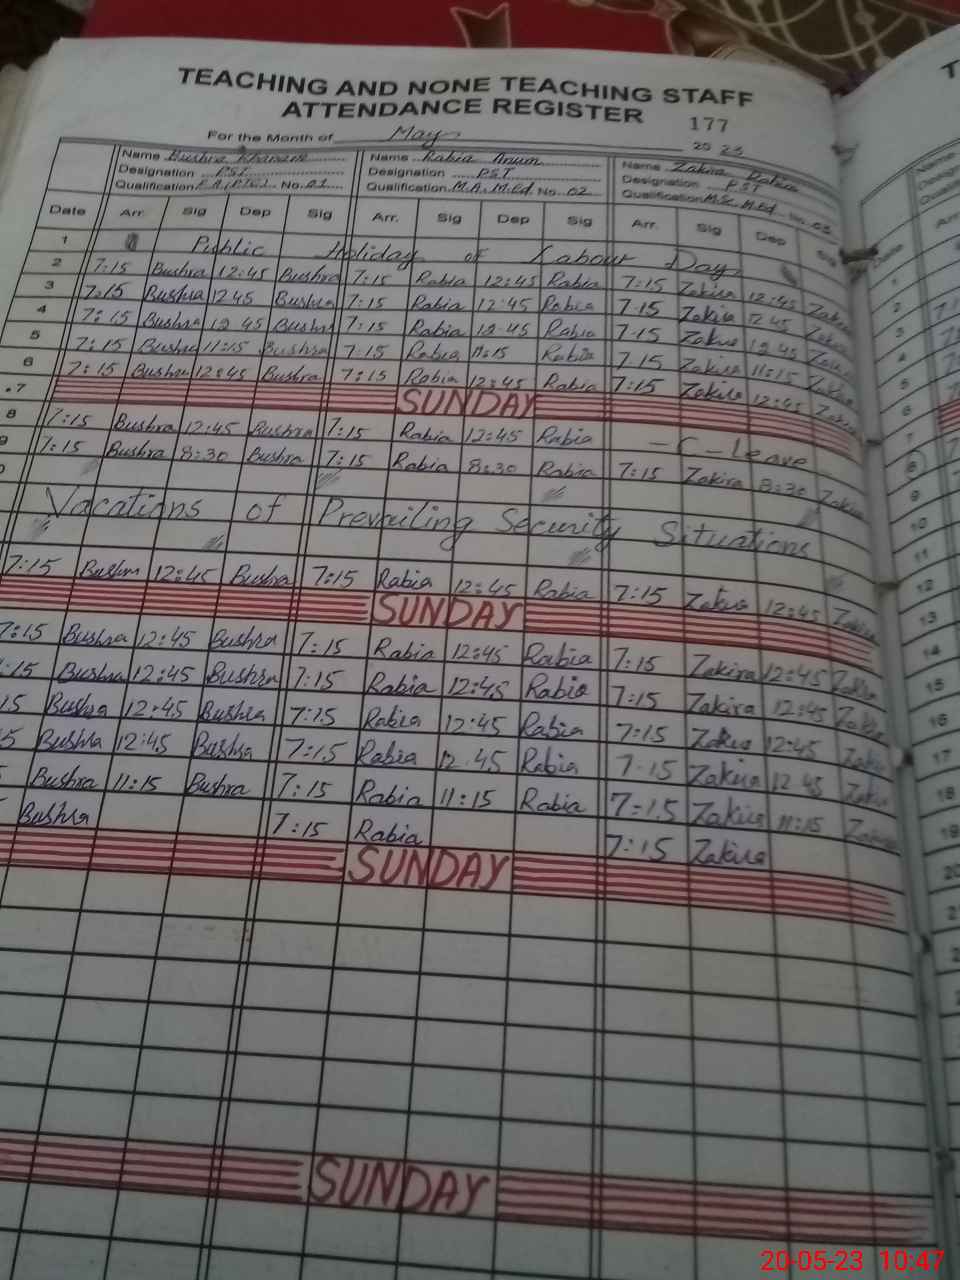 TEACHING AND NONE TEACHING STAFF
ATTENDANCE REGISTER 177
For the Month of May 2023
Name Bushra Khanam Name Rabia Anum Name Zakira
Designation PST Designation PST Designation PST
Qualification No. 01 Qualification M.A, M.Ed No. 02 Qualification M.Sc, M.Ed No. 03
Date Arr. Sig Dep Sig Arr. Sig Dep Sig Arr. Sig Dep Sig
1 Public Holiday of Labour Day
2 7:15 Bushra 12:45 Bushra 7:15 Rabia 12:45 Rabia 7:15 Zakira 12:45 Zakira
3 7:15 Bushra 12 45 Bushra 7:15 Rabia 12:45 Rabia 7.15 Zakira 12 45 Zakira
4 7:15 Bushra 12 45 Bushra 7:15 Rabia 12.45 Rabia 7.15 Zakira 12 45 Zakira
5 7:15 Bushra 11:15 Bushra 7:15 Rabia 11:15 Rabia 7.15 Zakira 11:15 Zakira
6 7:15 Bushra 12:45 Bushra 7:15 Rabia 12:45 Rabia 7:15 Zakira 12:45 Zakira
7 SUNDAY
8 7:15 Bushra 12:45 Bushra 7:15 Rabia 12:45 Rabia - C - Leave
9 7:15 Bushra 8:30 Bushra 7:15 Rabia 8:30 Rabia 7:15 Zakira 8:30 Zakira
Vacations of Prevailing Security Situations
7:15 Bushra 12:45 Bushra 7:15 Rabia 12:45 Rabia 7:15 Zakira 12:45 Zakira
SUNDAY
7:15 Bushra 12:45 Bushra 7:15 Rabia 12:45 Rabia 7:15 Zakira 12:45 Zakira
:15 Bushra 12:45 Bushra 7:15 Rabia 12:45 Rabia 7:15 Zakira 12:45 Zakira
15 Bushra 12:45 Bushra 7:15 Rabia 12:45 Rabia 7:15 Zakira 12:45 Zakira
5 Bushra 12:45 Bushra 7:15 Rabia 12.45 Rabia 7.15 Zakira 12 45 Zakira
Bushra 11:15 Bushra 7:15 Rabia 11:15 Rabia 7:15 Zakira 11:15 Zakira
Bushra 7:15 Rabia 7:15 Zakira
SUNDAY
SUNDAY
1
2
3
4
5
6
7
8
9
10
11
12
13
14
15
16
17
18
19
20
20-05-23 10:47